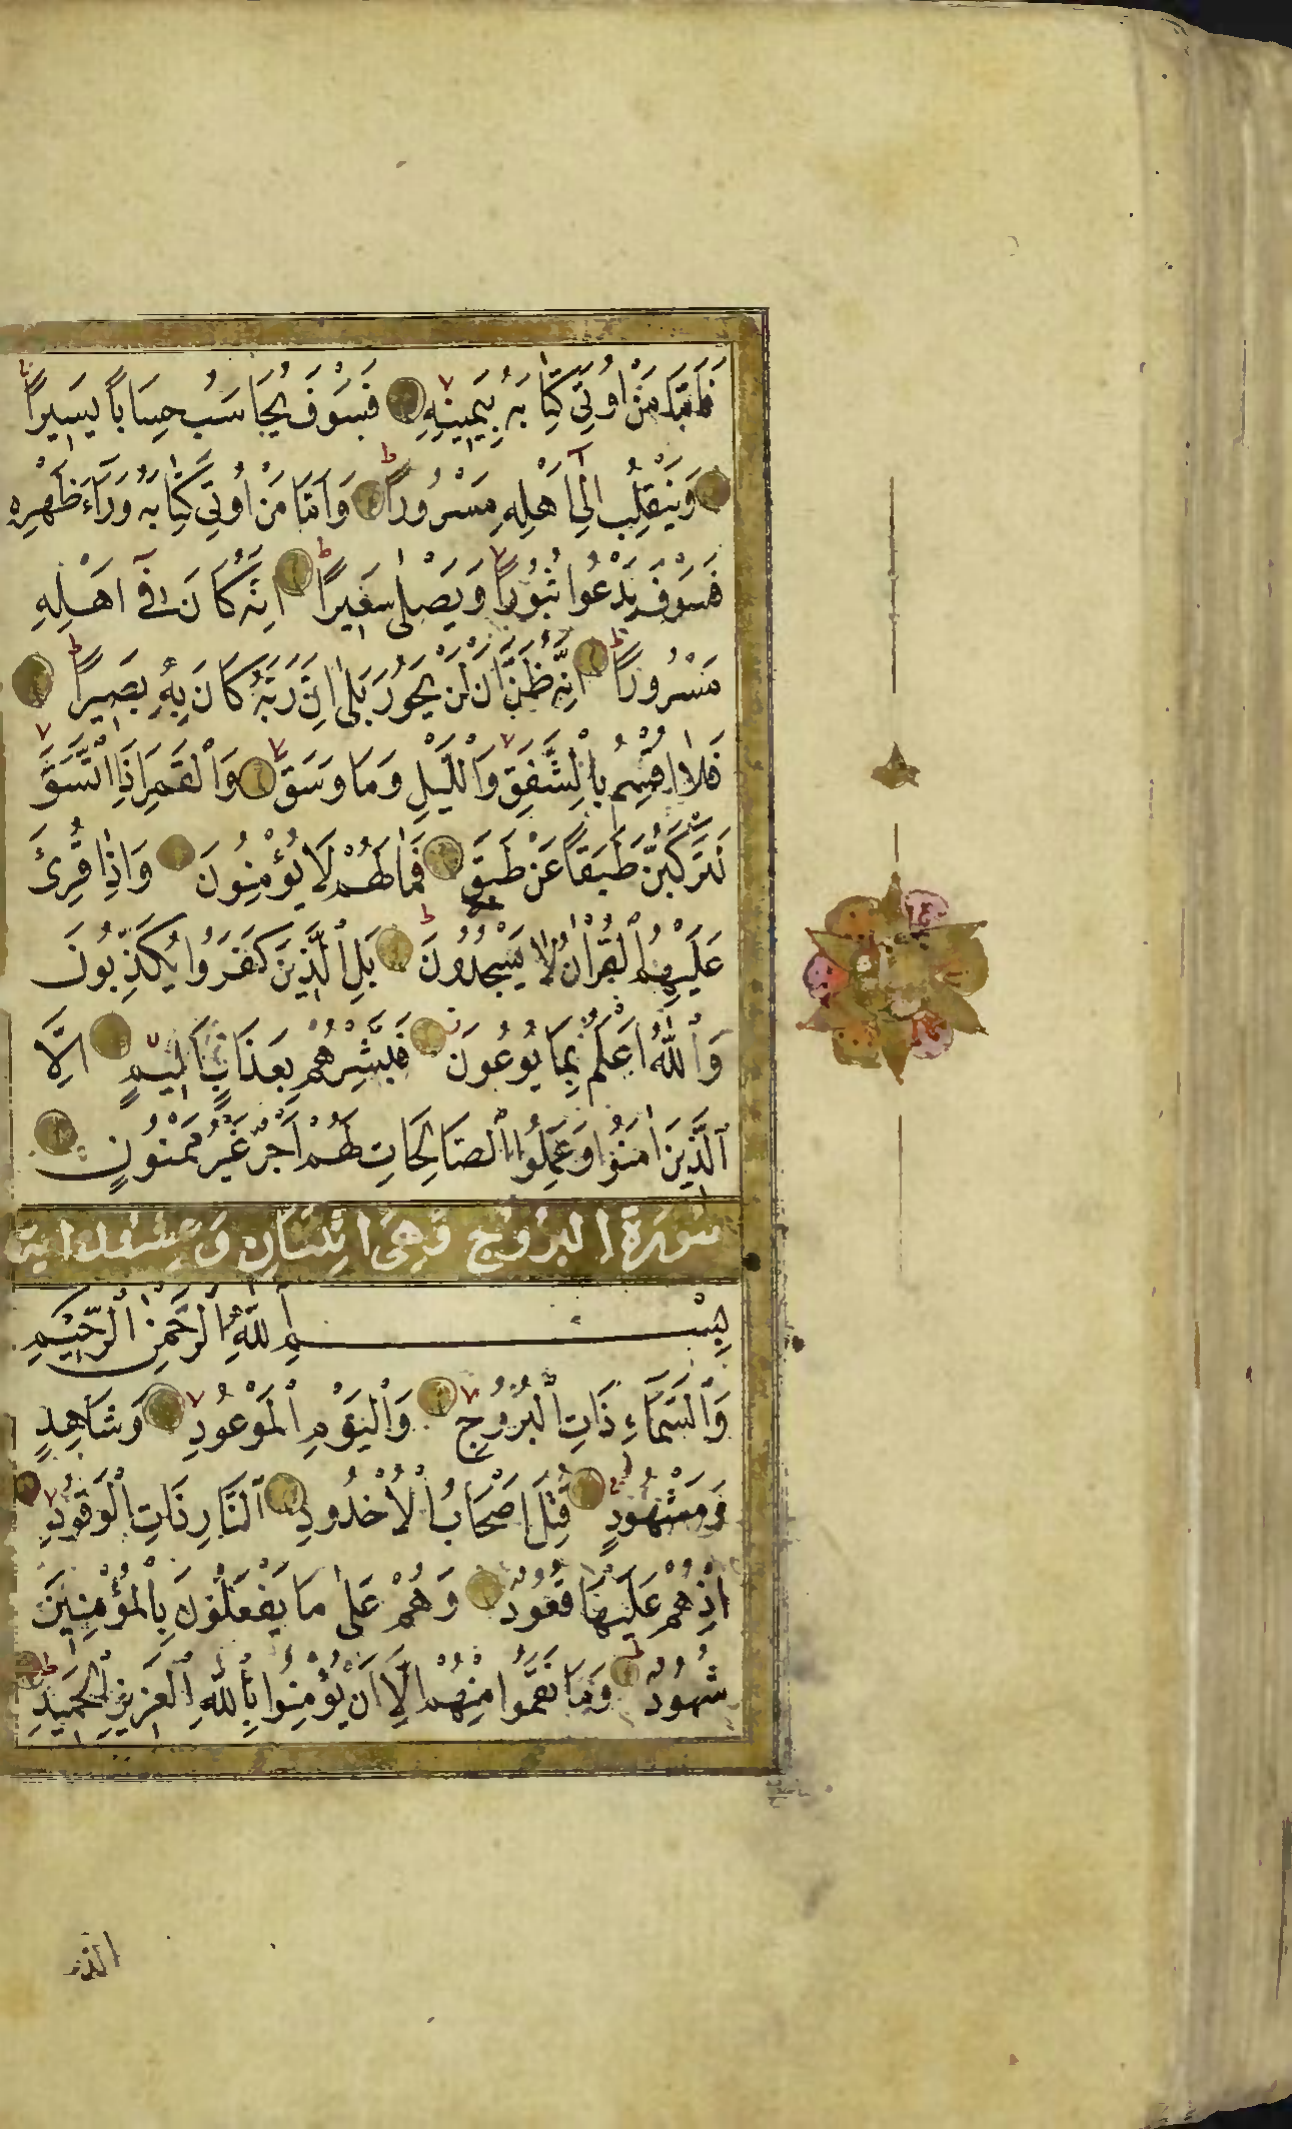 فَاَمَّا مَنْ اُو۫تِيَ كِتَابَهُ بِيَمٖينِهِ فَسَوْفَ يُحَاسَبُ حِسَاباً يَسٖيراً
وَيَنْقَلِبُ اِلٰٓى اَهْلِهِ مَسْرُوراً وَاَمَّا مَنْ اُو۫تِيَ كِتَابَهُ وَرَٓاءَ ظَهْرِهِ
فَسَوْفَ يَدْعُوا ثُبُوراً وَيَصْلٰى سَعٖيراً اِنَّهُ كَانَ فٖٓي اَهْلِهِ
مَسْرُوراً اِنَّهُ ظَنَّ اَنْ لَنْ يَحُورَ بَلٰى اِنَّ رَبَّهُ كَانَ بِهِ بَصٖيراً
فَلَٓا اُقْسِمُ بِالشَّفَقِ وَالَّيْلِ وَمَا وَسَقَ وَالْقَمَرِ اِذَا اتَّسَقَ
لَتَرْكَبُنَّ طَبَقاً عَنْ طَبَقٍ فَمَا لَهُمْ لَا يُؤْمِنُونَ وَاِذَا قُرِئَ
عَلَيْهِمُ الْقُرْاٰنُ لَا يَسْجُدُونَ بَلِ الَّذٖينَ كَفَرُوا يُكَذِّبُونَ
وَاللّٰهُ اَعْلَمُ بِمَا يُوعُونَ فَبَشِّرْهُمْ بِعَذَابٍ اَلٖيمٍ اِلَّا
الَّذٖينَ اٰمَنُوا وَعَمِلُوا الصَّالِحَاتِ لَهُمْ اَجْرٌ غَيْرُ مَمْنُونٍ
سُورَةُ الْبُرُوجِ وَهِيَ اثْنَتَانِ وَعِشْرُونَ اٰيَة
بِسْمِ اللّٰهِ الرَّحْمٰنِ الرَّحٖيمِ
وَالسَّمَٓاءِ ذَاتِ الْبُرُوجِ وَالْيَوْمِ الْمَوْعُودِ وَشَاهِدٍ
وَمَشْهُودٍ قُتِلَ اَصْحَابُ الْاُخْدُودِ اَلنَّارِ ذَاتِ الْوَقُودِ
اِذْ هُمْ عَلَيْهَا قُعُودٌ وَهُمْ عَلٰى مَا يَفْعَلُونَ بِالْمُؤْمِنٖينَ
شُهُودٌ وَمَا نَقَمُوا مِنْهُمْ اِلَّٓا اَنْ يُؤْمِنُوا بِاللّٰهِ الْعَزٖيزِ الْحَمٖيدِ